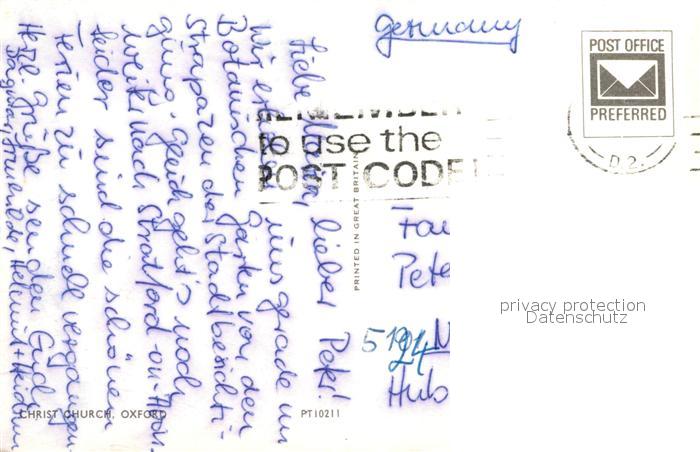 Germany
POST OFFICE
PREFERRED
to use the
POST CODE
D2.
PRINTED IN GREAT BRITAIN
Liebe lieber Peter!
Wir uns gerade im
Botanischen Garten von den
Strapazen der Stadtbesichti-
gung. Gleich geht's noch
weiter nach Stratford-on-Avon.
Leider sind die schönen
Ferien zu schnell vergangen.
Herzl. Grüße senden Euch
Helmut + Heidrun
Fam
Pete
5124 N
Hub
privacy protection
Datenschutz
CHRIST CHURCH, OXFORD
PT10211